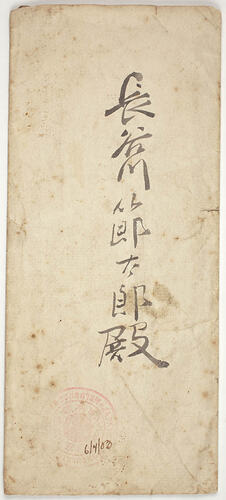 長谷川節太郎殿
6/4/00